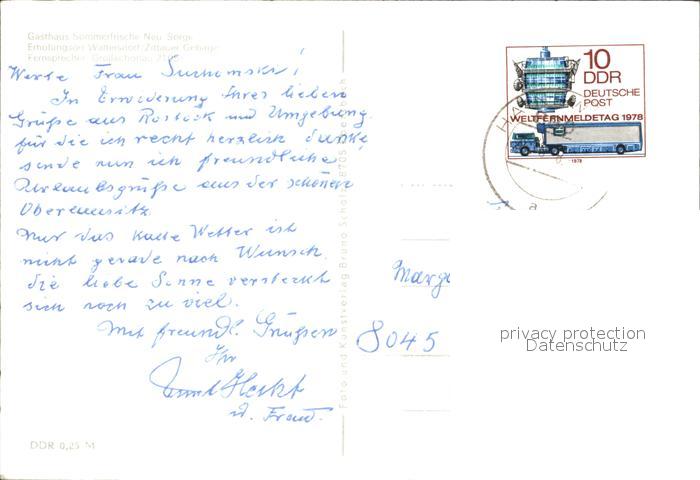 Gasthaus Sommerfrische Neu Sorge
Erholungsort Waltersdorf/Zittauer Gebirge
Fernsprecher Großschönau
Werte Frau
In Erwiderung Ihres lieben
Grüße aus Rostock und Umgebung,
für die ich recht herzlich danke,
sende nun ich freundliche
Urlaubsgrüße aus der schönen
Oberlausitz.
Nur das kalte Wetter ist
nicht gerade nach Wunsch.
die liebe Sonne versteckt
sich noch zu viel.
Mit freundl. Grüßen
Ihr
u. Frau.
DDR 0,25 M
Foto und Kunstverlag Bruno
10
DDR
DEUTSCHE
POST
WELTFERNMELDETAG 1978
1978
Marga
8045
privacy protection
Datenschutz